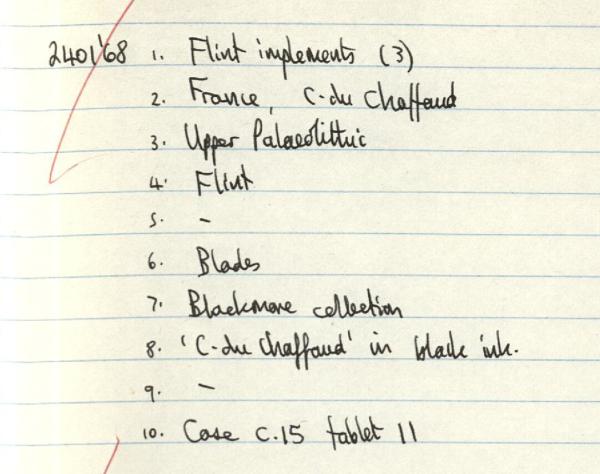 2401'68 1. Flint implements (3)
2. France, C-du Chaffaud
3. Upper Palaeolithic
4. Flint
5. -
6. Blades
7. Blackmore collection
8. 'C-du Chaffaud' in black ink.
9. -
10. Case C.15 tablet 11